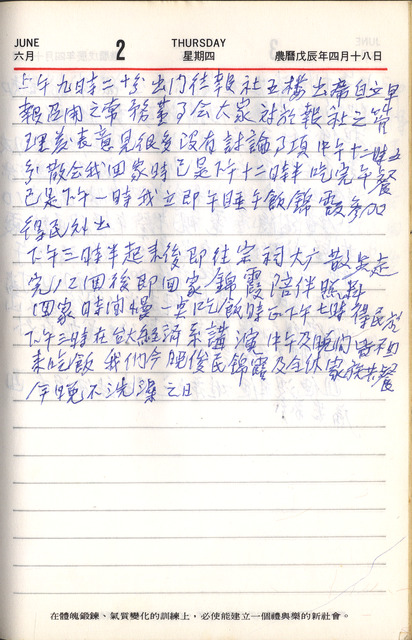 JUNE 2 THURSDAY
六月 星期四 農曆戊辰年四月十八日
上午九時二十分出門往報社五樓出席自立早
報召開之常務董事會大家對於報社之管
理發表意見很多沒有討論事項中午十二時五
分散會我回家時已是下午十二時半吃完午餐
已是下午一時我立即午睡午飯錦霞參加
得民外出
下午三時半起來後即往宗祠大广散步走
完12回後即回家錦霞陪伴照料
回家時間慢一些吃飯時正下午七時得民於
下午三時在台大經濟系講演中午及晚間皆不回
來吃飯我們今晚俊民錦霞及全休家族共餐
今晚不洗澡之日
在體魄鍛鍊、氣質變化的訓練上,必使能建立一個禮與樂的新社會。